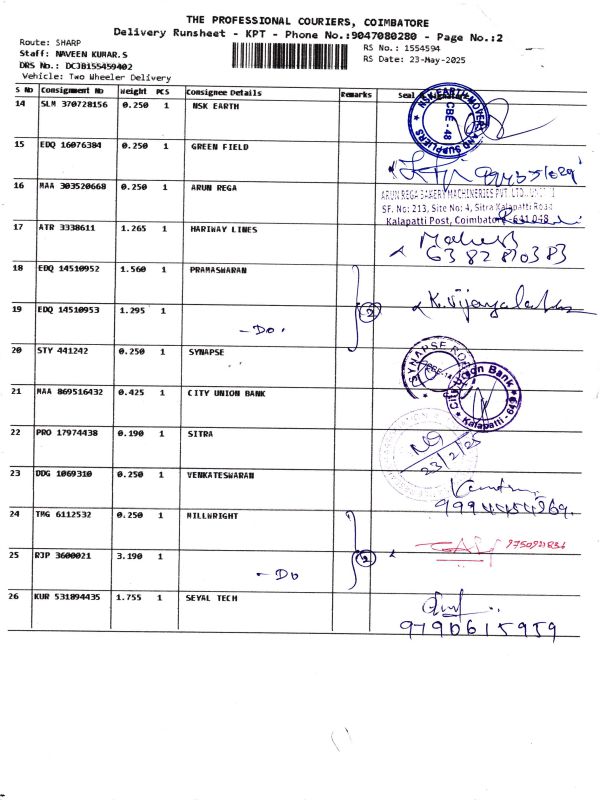 THE PROFESSIONAL COURIERS, COIMBATORE
Delivery Runsheet - KPT - Phone No.:9047080280 - Page No.:2
Route: SHARP
RS No.: 1554594
Staff: NAVEEN KUMAR.S
RS Date: 23-May-2025
DRS No.: DCJB155459402
Vehicle: Two Wheeler Delivery
S No Consignment No Weight PCS Consignee Details Remarks Seal
14 SLM 370728156 0.250 1 NSK EARTH
NSK EARTH MOVERS AND SUPPLIERS
CBE - 48
15 EDQ 16076384 0.250 1 GREEN FIELD
16 MAA 303520668 0.250 1 ARUN REGA
ARUN REGA BAKERY MACHINERIES PVT. LTD.,
SF. No: 213, Site No: 4, Sitra Kalapatti Road
Kalapatti Post, Coimbatore 641 048
17 ATR 3338611 1.265 1 HARIWAY LINES
Mahesh
6382820383
18 EDQ 14510952 1.560 1 PRAMASWARAN
2
K. Vijayalakshmi
19 EDQ 14510953 1.295 1
- Do.
20 STY 441242 0.250 1 SYNAPSE
SYNAPSE
21 MAA 869516432 0.425 1 CITY UNION BANK
City Union Bank
Kalapatti
22 PRO 17974438 0.190 1 SITRA
23/2/25
23 DDG 1069310 0.250 1 VENKATESWARAN
9994454269.
24 TMG 6112532 0.250 1 MILLWRIGHT
25 RJP 3600021 3.190 1
2
- Do
26 KUR 531894435 1.755 1 SEYAL TECH
9790615959